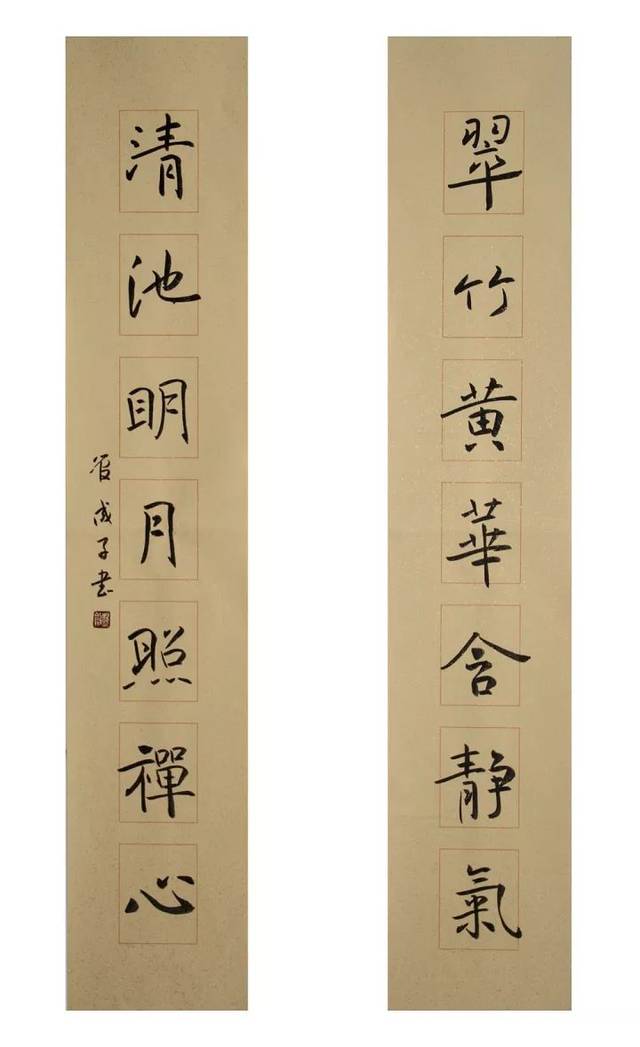 翠竹黄華含静氣
清池明月照禪心
成子书